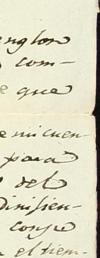 nglon
com-
e que
e mi cuen-
para
del
Dirisien-
conse
el tiem-